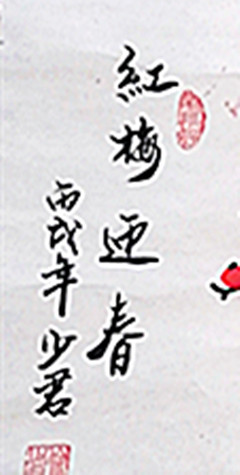 紅梅迎春
丙戌年少君